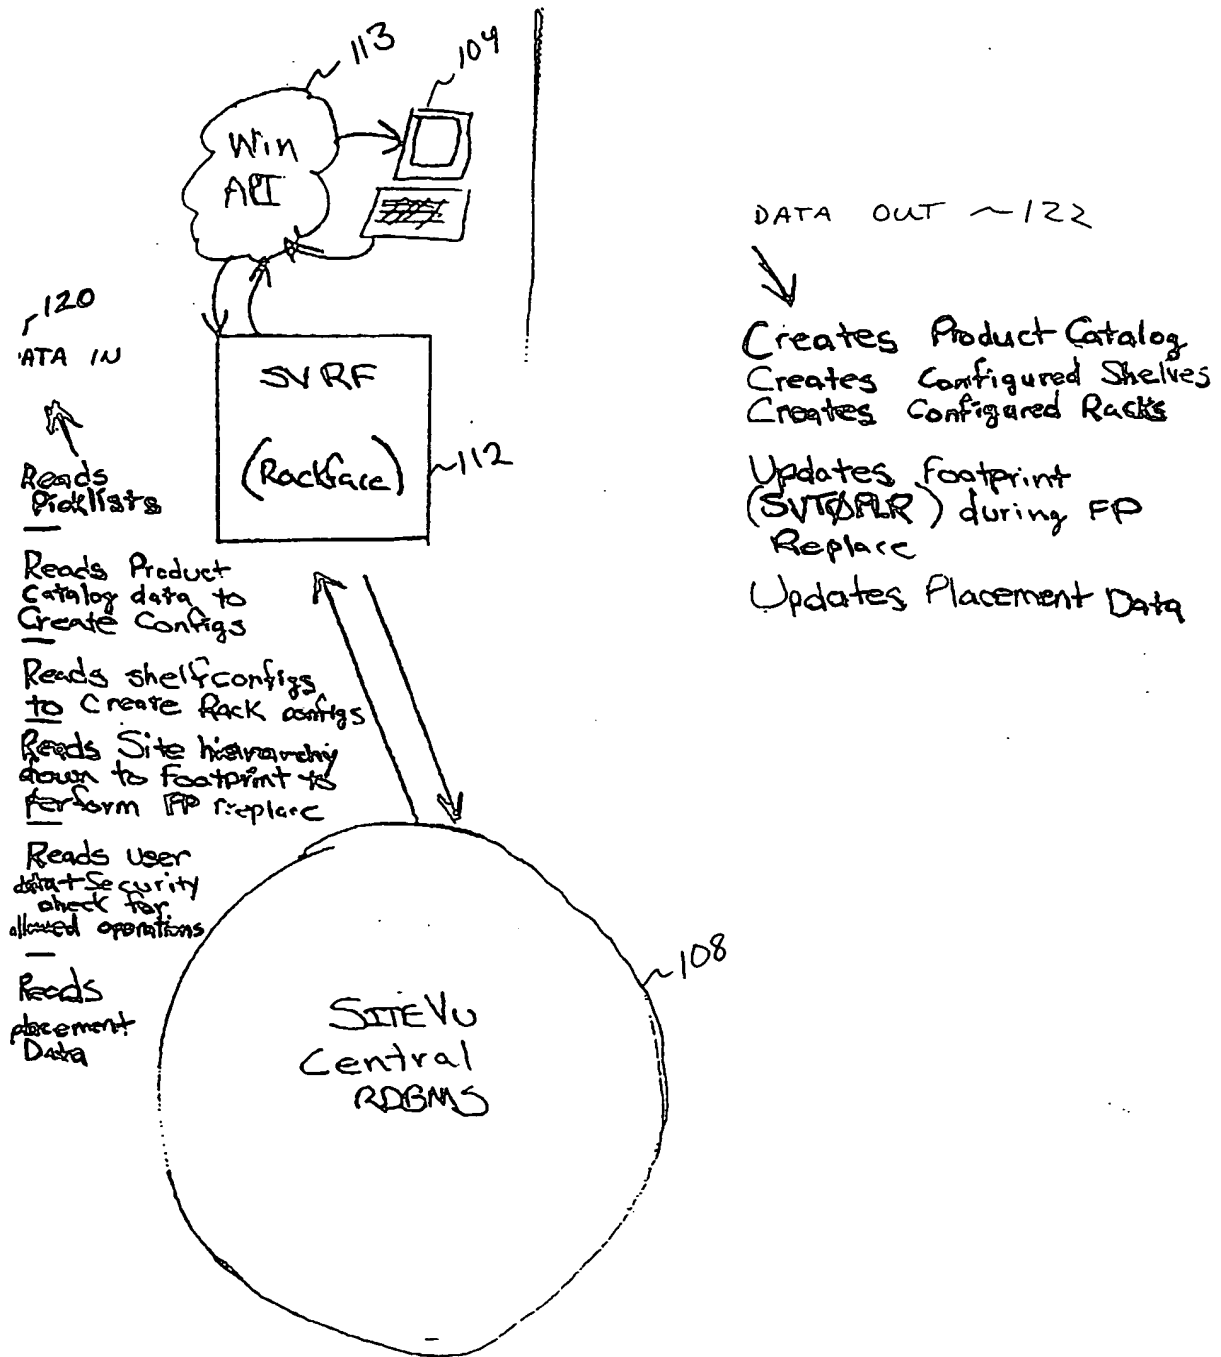 113
104
Win
API
120
ATA IN
SVRF
(Rackface)
112
Reads
Picklists
Reads Product
Catalog data to
Create Configs
Reads shelf configs
to Create Rack configs
Reads Site hierarchy
down to Footprint to
perform FP replace
Reads user
data + Security
check for
allowed operations
Reads
placement
Data
SITEVU
Central
RDBMS
108
DATA OUT ~122
Creates Product Catalog
Creates Configured Shelves
Creates Configured Racks
Updates Footprint
(SVTØFLR) during FP
Replace
Updates Placement Data